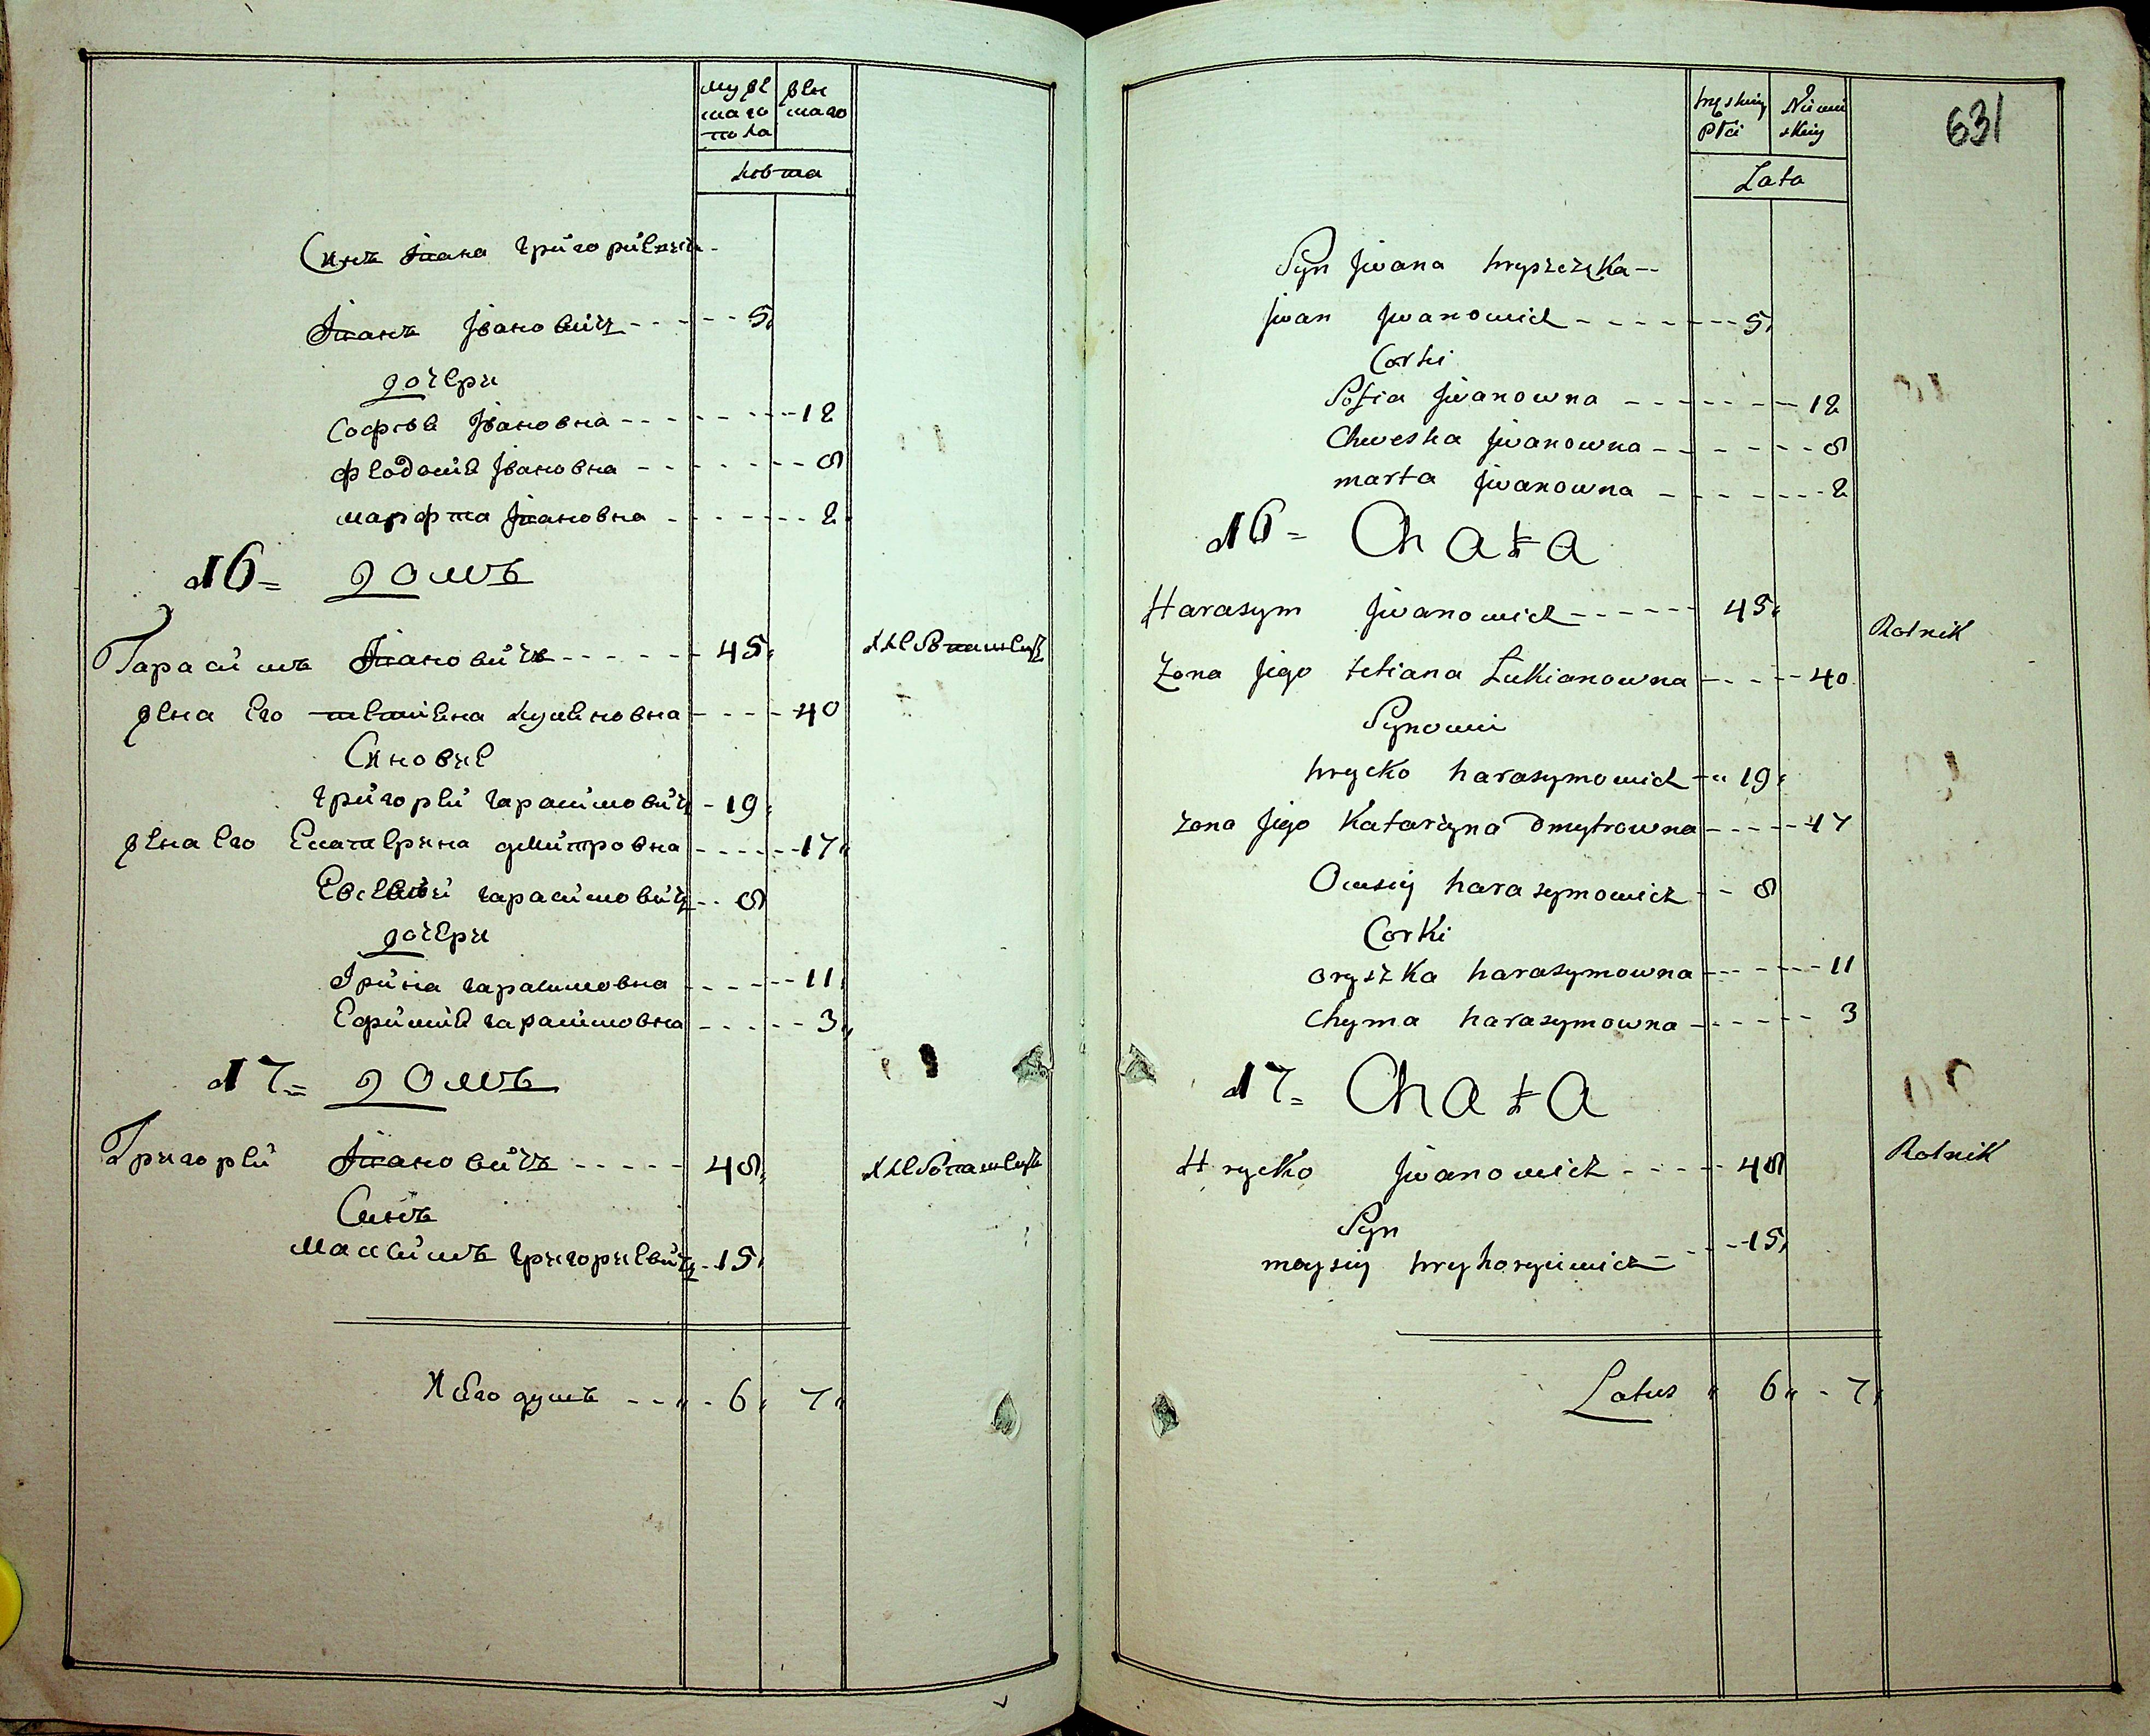 мужескаго пола
женскаго
лѣта
Синъ Ивана григориевича
Иванъ Івановичъ 5
дочери
Софія Івановна 12
Феодосия Івановна 8
марфта Івановна 2
16 = домъ
Гарасимъ Івановичъ 45 хлебопашецъ
жена его тетиена лукиеновна 40
Синовие
григорий гарасимовичъ 19
жена его Екатерина дмитровна 17
Евсевий гарасимовичъ 8
дочери
Ірина гарасимовна 11
Ефимия гарасимовна 3
17 = домъ
Григорий Івановичъ 48 хлебопашецъ
Синъ
Максимъ григориевичъ 15
Всего душъ 6 7
męskiey Płci
Niewieskiey
Lata
631
Syn Jwana hryszczka
Jwan Jwanowicz 5
Corki
Sofia Jwanowna 12
Chweska Jwanowna 8
marta Jwanowna 2
16 = Chata
Harasym Jwanowicz 45 Rolnik
żona Jego tetiana Łukianowna 40
Synowie
hrycko harasymowicz 19
żona Jego Katarżyna Dmytrowna 17
Owsiy harasymowicz 8
Corki
oryszka harasymowna 11
Chyma harasymowna 3
17 = Chata
Hrycko Jwanowicz 48 Rolnik
Syn
moysiy hryhoryiewicz 15
Latus 6 7